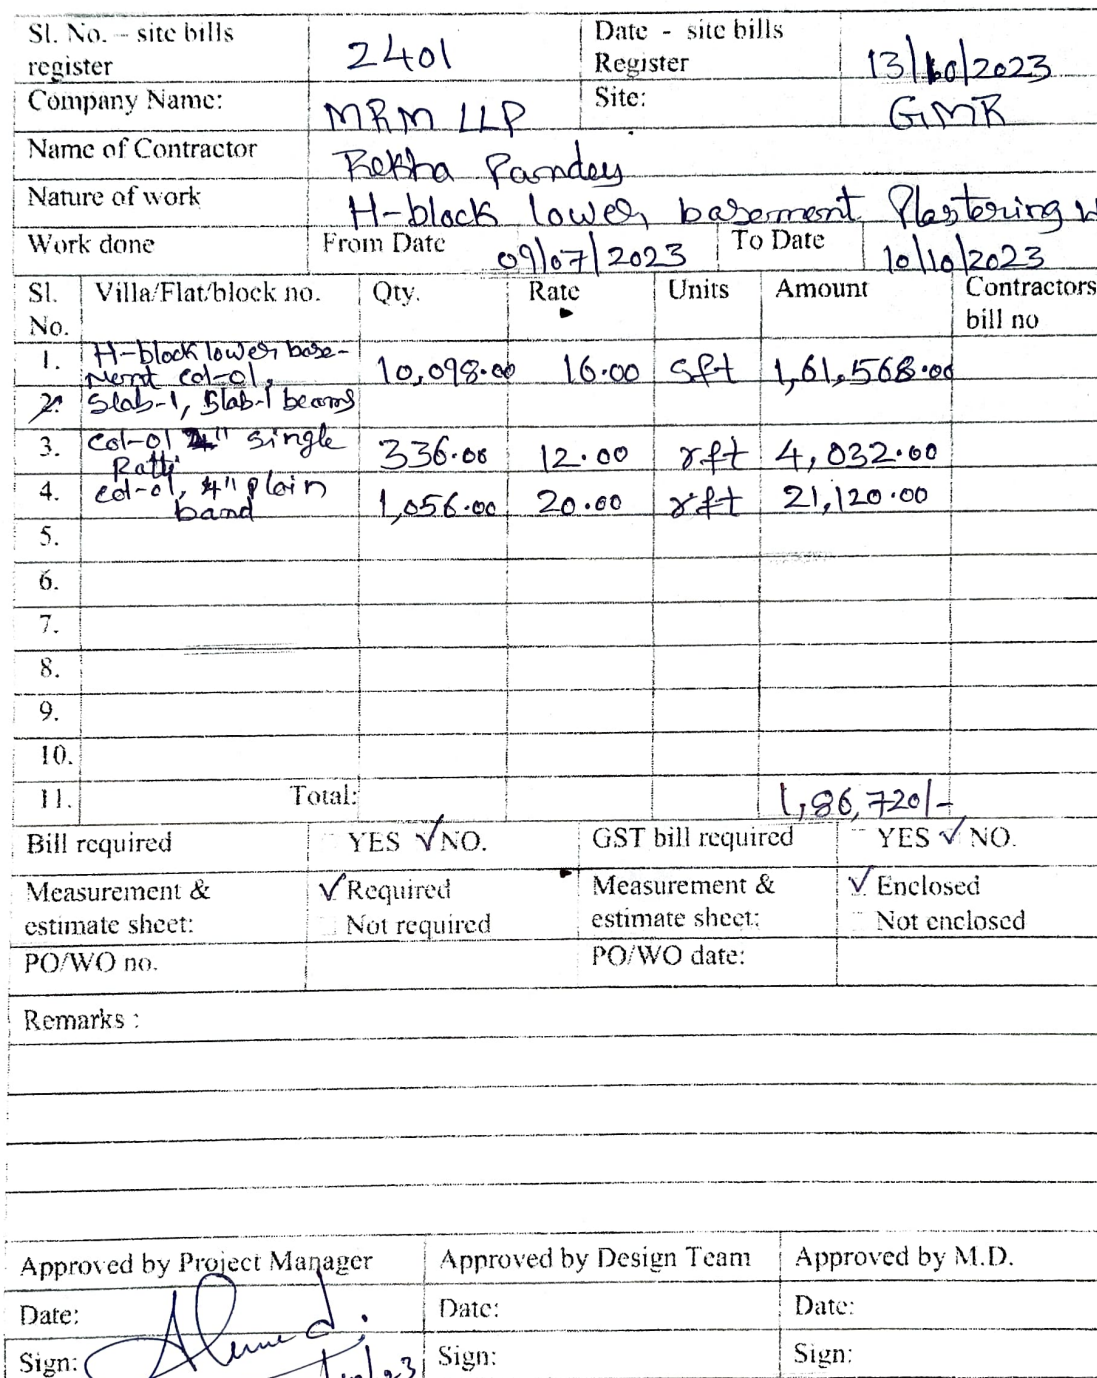 Sl. No. – site bills register 2401 Date - site bills Register 13/10/2023
Company Name: MRM LLP Site: GMR
Name of Contractor Rekha Pandey
Nature of work H-block lower basement Plastering
Work done From Date 09/07/2023 To Date 10/10/2023
Sl. No. Villa/Flat/block no. Qty. Rate Units Amount Contractors bill no
1. H-block lower base-
ment col-01, 10,098.00 16.00 sft 1,61,568.00
2. Slab-1, Slab-1 beams
3. Col-01 4" single
Patti 336.00 12.00 rft 4,032.00
4. col-01, 4" plain
band 1,056.00 20.00 rft 21,120.00
5.
6.
7.
8.
9.
10.
11. Total: 1,86,720/-
Bill required YES √ NO. GST bill required YES √ NO.
Measurement & estimate sheet: √ Required Not required Measurement & estimate sheet: √ Enclosed Not enclosed
PO/WO no. PO/WO date:
Remarks :
Approved by Project Manager Approved by Design Team Approved by M.D.
Date: Date: Date:
Sign: Sign: Sign: